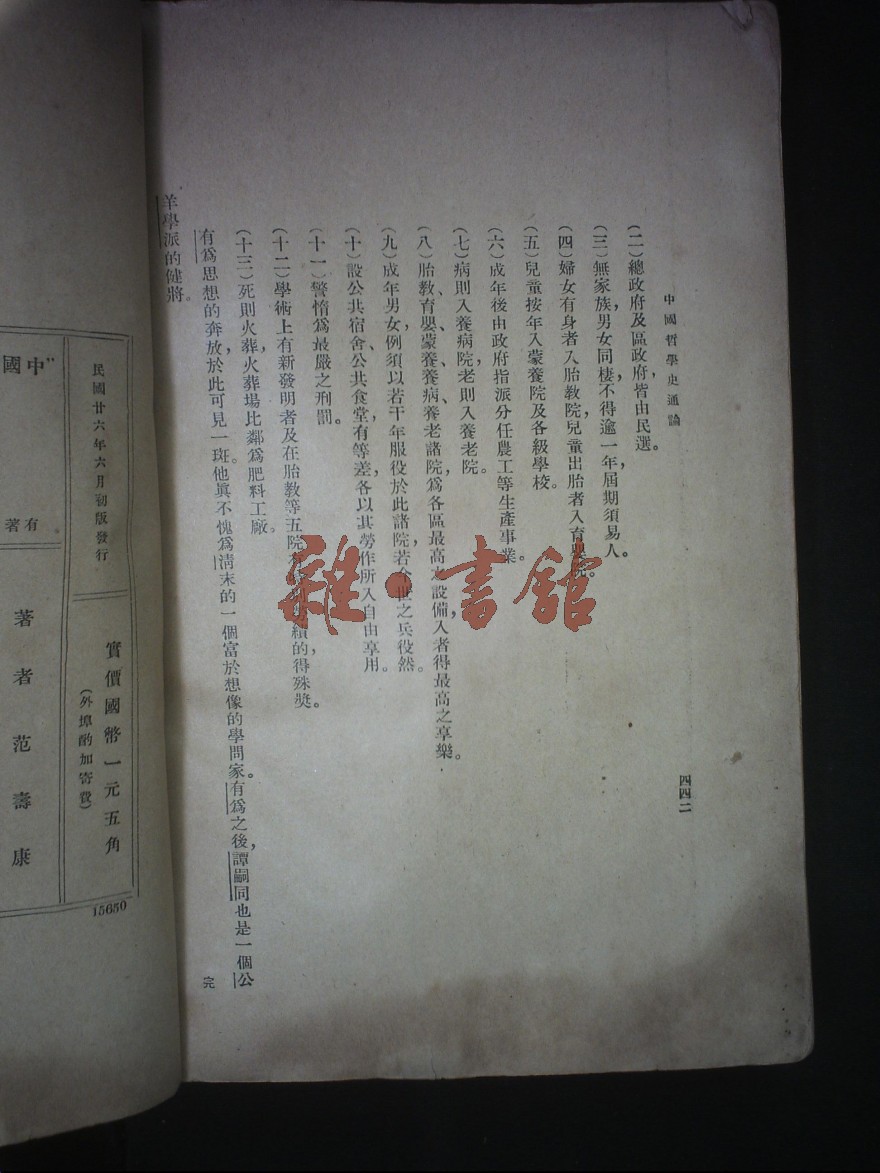 中國哲學史通論
四四二
(二)總政府及區政府,皆由民選。
(三)無家族,男女同棲不得逾一年,屆期須易人。
(四)婦女有身者入胎敎院,兒童出胎者入育嬰院。
(五)兒童按年入蒙養院及各級學校。
(六)成年後由政府指派分任農工等生產事業。
(七)病則入養病院,老則入養老院。
(八)胎敎、育嬰、蒙養、養病、養老諸院,爲各區最高之設備,入者得最高之享樂。
(九)成年男女,例須以若干年服役於此諸院,若今世之兵役然。
(十)設公共宿舍、公共食堂,有等差,各以其勞作所入自由享用。
(十一)警惰爲最嚴之刑罰。
(十二)學術上有新發明者及在胎敎等五院有績的得殊奬。
(十三)死則火葬,火葬場比鄰爲肥料工廠。
有爲思想的奔放,於此可見一斑。他眞不愧爲淸末的一個富於想像的學問家。有爲之後,譚嗣同也是一個公
羊學派的健將。
完
雜·書館
民國廿六年六月初版發行
實價國幣一元五角
(外埠酌加寄費)
著者 范壽康
"中國
有著
15650